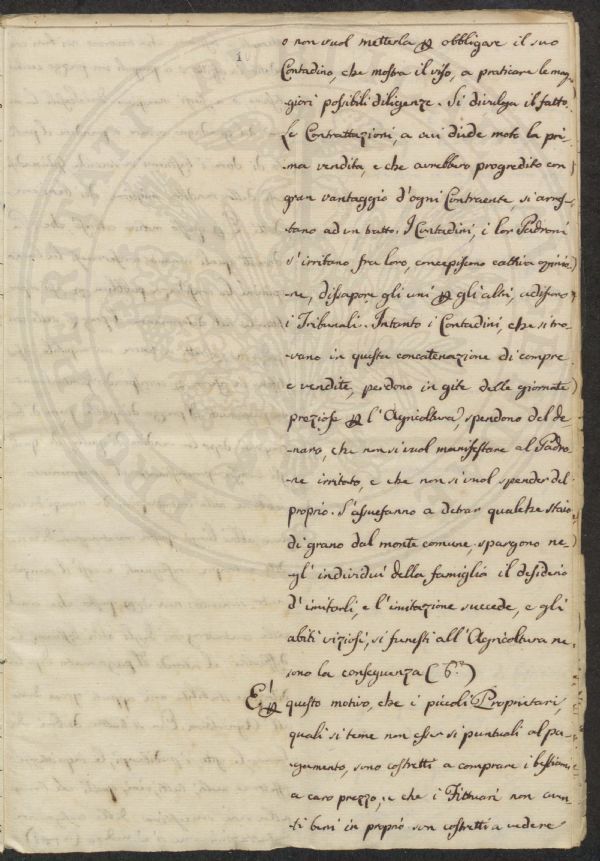 o non vuol metterla per obbligare il suo
Contadino, che mostra il viso, a praticare le mag-
giori possibili diligenze. Si divulga il fatto.
Le Contrattazioni, a cui diede moto la pri-
ma vendita, e che avrebbero progredito con
gran vantaggio d'ogni Contraente, si arres-
tano ad un tratto. I Contadini, i lor Padroni
s'irritano fra loro, concepiscono cattiva opinio-
ne, dissapore gli uni per gli altri, adiscono
i Tribunali. Intanto i Contadini, che si tro-
vano in questa concatenazione di compre
e vendite, perdono in gite delle giornate
preziose per l'Agricoltura, spendono del de-
naro, che non si vuol manifestare al Padro-
ne irritato, e che non si vuol spender del
proprio. S'assuefanno a detrar qualche staio
di grano dal monte comune, spargono ne-
gl' individui della famiglia il desiderio
d'imitarli, e l'imitazione succede, e gli
abiti viziosi, si funesti all'Agricoltura ne
sono la conseguenza (6.a)
E' per questo motivo, che i piccoli Proprietarj,
quali si teme non esser si puntuali al pa-
gamento, sono costretti a comprare i bestiami
a caro prezzo, e che i Fittuari non aven-
ti beni in proprio son costretti a vedere